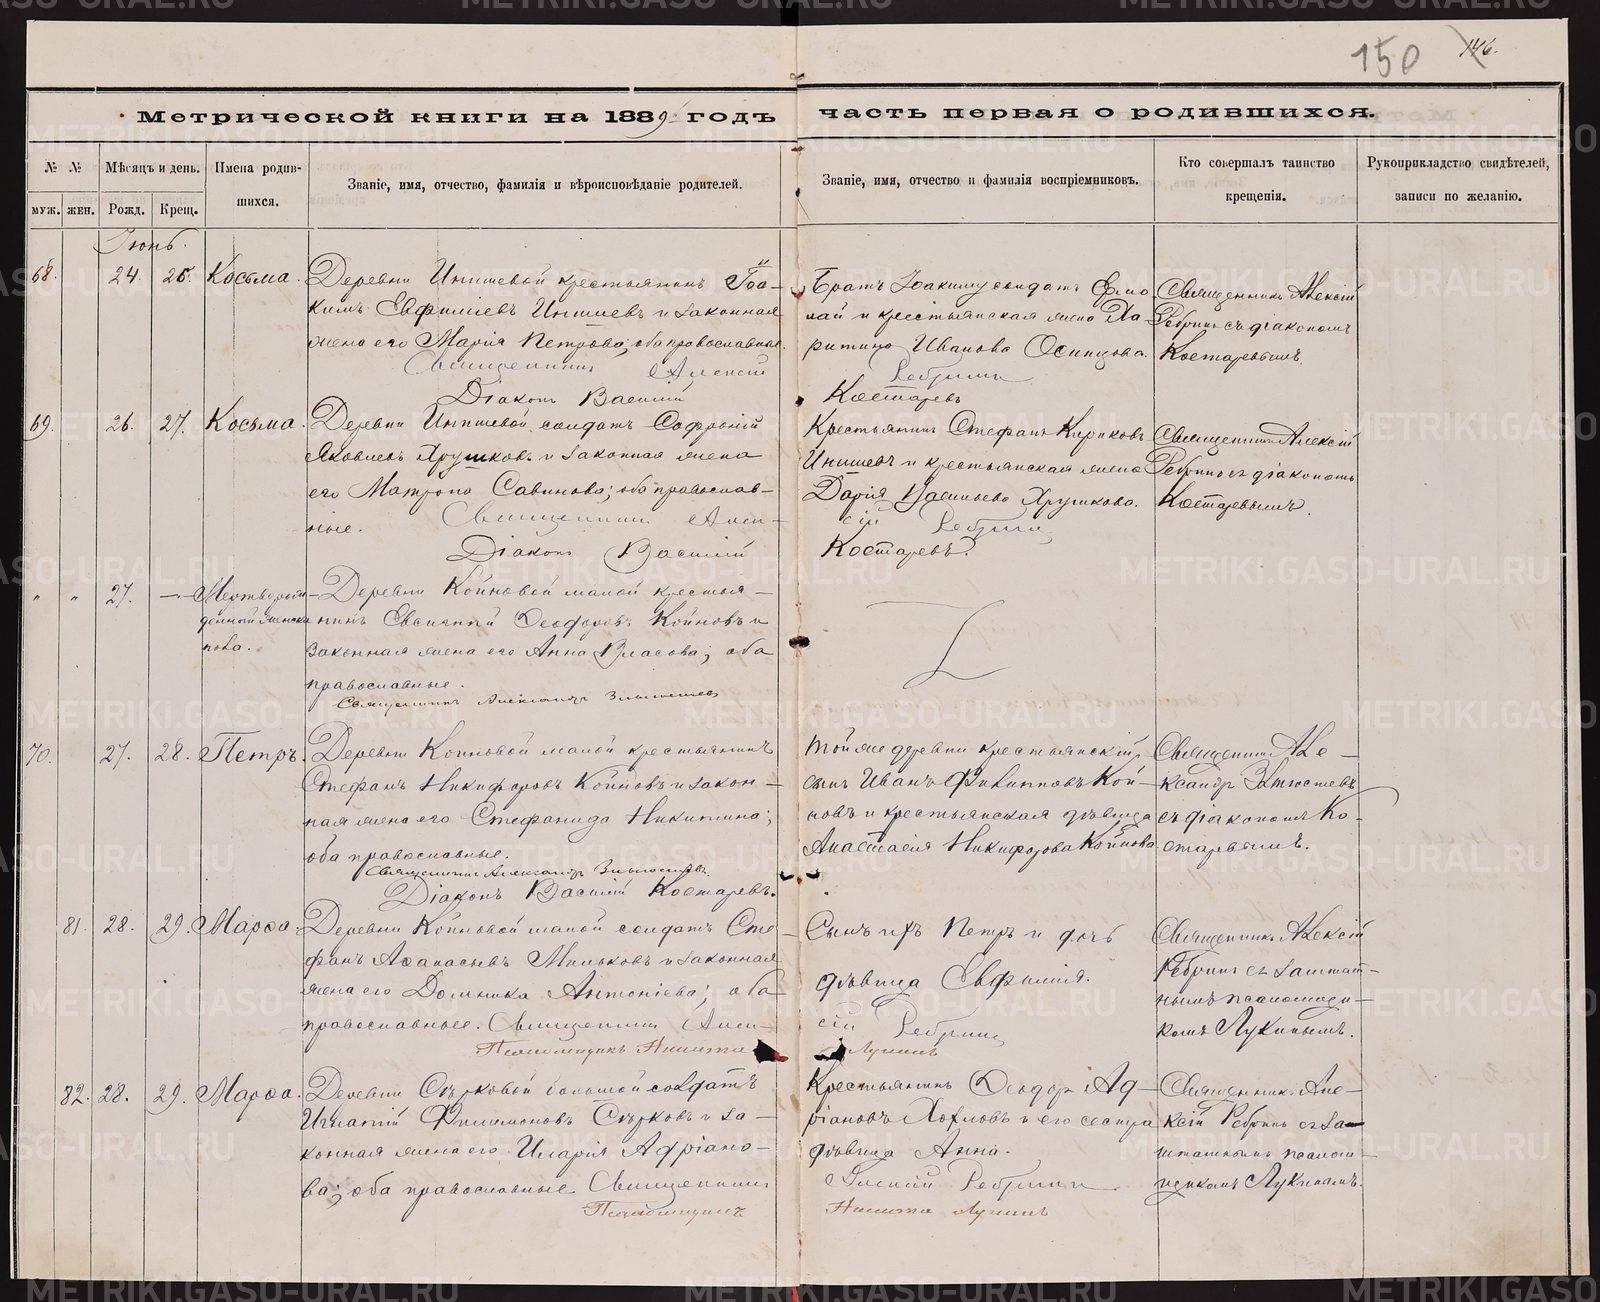 150 146.
Метрической книги на 1889 годъ часть первая о родившихся.
№ № Мѣсяцъ и день. Имена родив-
шихся.
Званіе, имя, отчество, фамилія и вѣроисповѣданіе родителей.
Званіе, имя, отчество и фамилія воспріемниковъ.
Кто совершалъ таинство
крещенія.
Рукоприкладство свидѣтелей,
записи по желанію.
муж. жен. Рожд. Крещ.
Іюнь.
68. 24. 25. Косьма.
Деревни Инишевой крестьянинъ Іоа-
кимъ Евфиміевъ Инишевъ и законная
жена его Марія Петрова; оба православные.
Священникъ Алексій Ребринъ
Діаконъ Василій Костаревъ
Братъ Іоакиму солдатъ Ермо-
лай и крестьянская жена Ха-
ритина Иванова Осинцова.
Священникъ Алексій
Ребринъ съ діакономъ
Костаревымъ.
69. 26. 27. Косьма.
Деревни Инишевой солдатъ Софроній
Яковлевъ Хрушковъ и законная жена
его Матрона Савинова; оба православ-
ные. Священникъ Алек-
сій Ребринъ
Діаконъ Василій Костаревъ.
Крестьянинъ Стефанъ Кириковъ
Инишевъ и крестьянская жена
Дарія Васильева Хрушкова.
Священникъ Алексій
Ребринъ съ діакономъ
Костаревымъ.
" " 27. — Мертворож-
денный женска
пола.
Деревни Койновой малой крестья-
нинъ Евсигній Ѳеодоровъ Койновъ и
законная жена его Анна Власова; оба
православные.
Священникъ Александръ
70. 27. 28. Петръ.
Деревни Койновой малой крестьянинъ
Стефанъ Никифоровъ Койновъ и закон-
ная жена его Стефанида Никитина;
оба православные.
Священникъ Александръ
Діаконъ Василій Костаревъ.
Той же деревни крестьянскій
сынъ Иванъ Филипповъ Кой-
новъ и крестьянская дѣвица
Анастасія Никифорова Койнова
Священникъ Але-
ксандръ
съ діакономъ Ко-
старевымъ.
81. 28. 29. Марѳа.
Деревни Койновой малой солдатъ Сте-
фанъ Аѳанасьевъ Мильковъ и законная
жена его Домника Антоніева; оба
православные. Священникъ Алек-
сій Ребринъ
Псаломщикъ Никита Лукинъ
Сынъ ихъ Петръ и дочь
дѣвица Евфимія.
Священникъ Алексій
Ребринъ съ заштат-
нымъ псаломщи-
комъ Лукинымъ.
82. 28. 29. Марѳа.
Деревни Сѣрковой большой солдатъ
Игнатій Филимоновъ Сѣрковъ и за-
конная жена его Иларія Адріано-
ва; оба православные. Священникъ
Алексій Ребринъ
Псаломщикъ Никита Лукинъ
Крестьянинъ Ѳеодоръ Ад-
ріановъ Хохловъ и его сестра
дѣвица Анна.
Священникъ Але-
ксій Ребринъ съ за-
штатнымъ псалом-
щикомъ Лукинымъ.